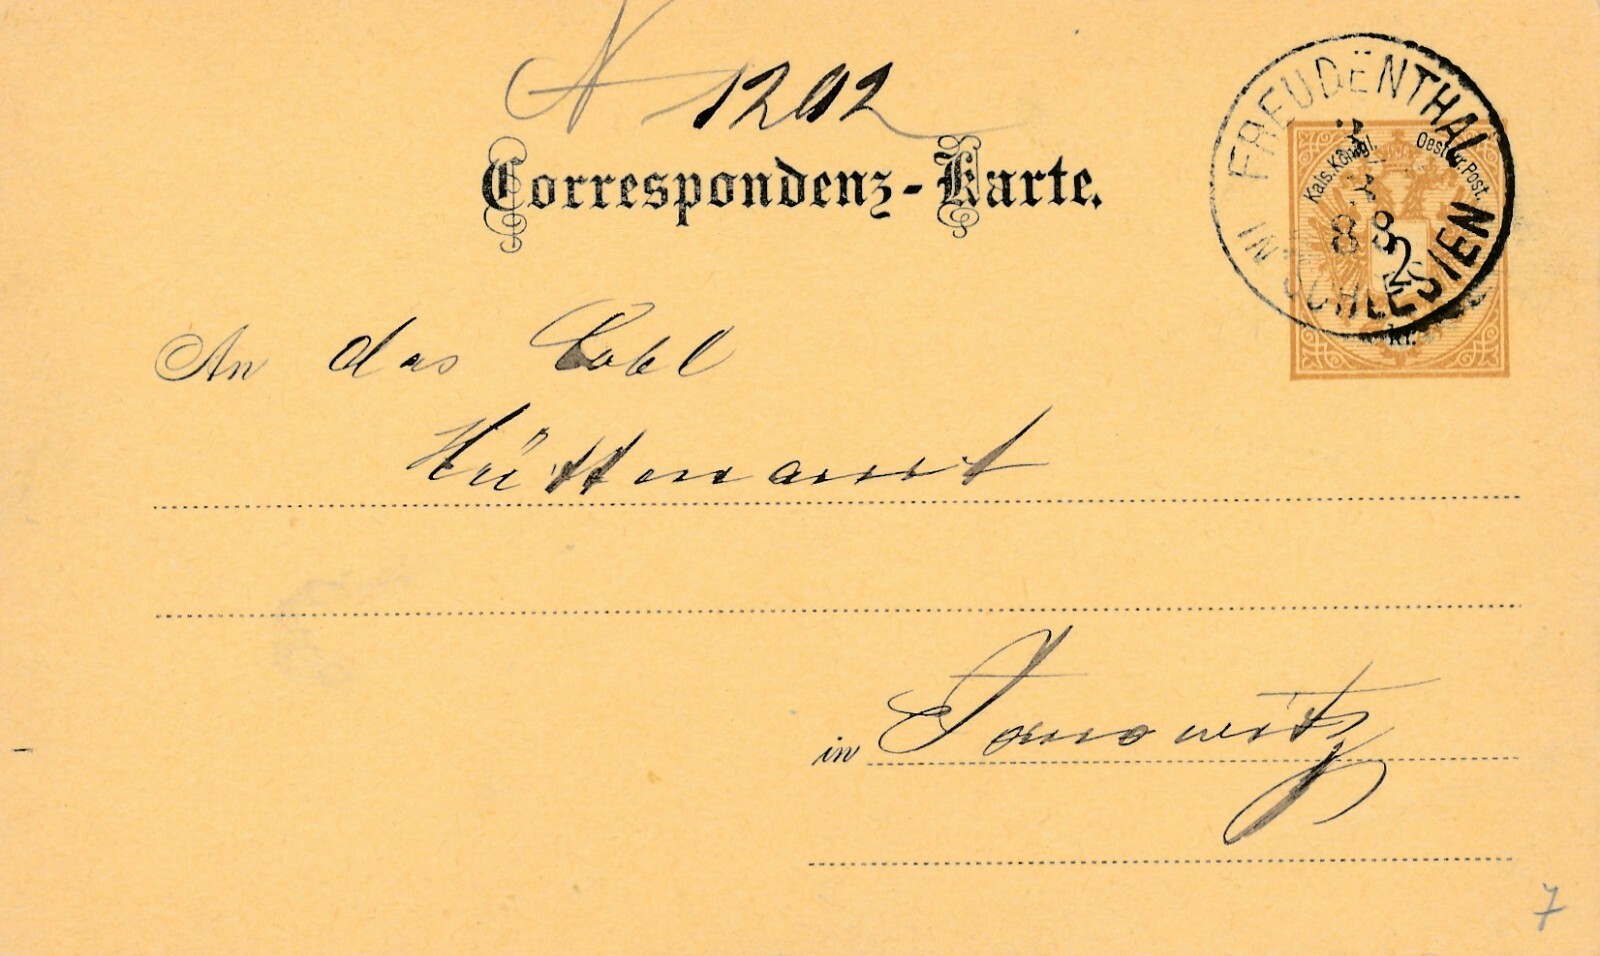 N 1292
Correspondenz-Karte.
FREUDENTHAL
IN SCHLESIEN
88
Kais. Königl. Oesterr. Post.
2
kr.
An das Löbl
Hüttenamt
in Janowitz
7